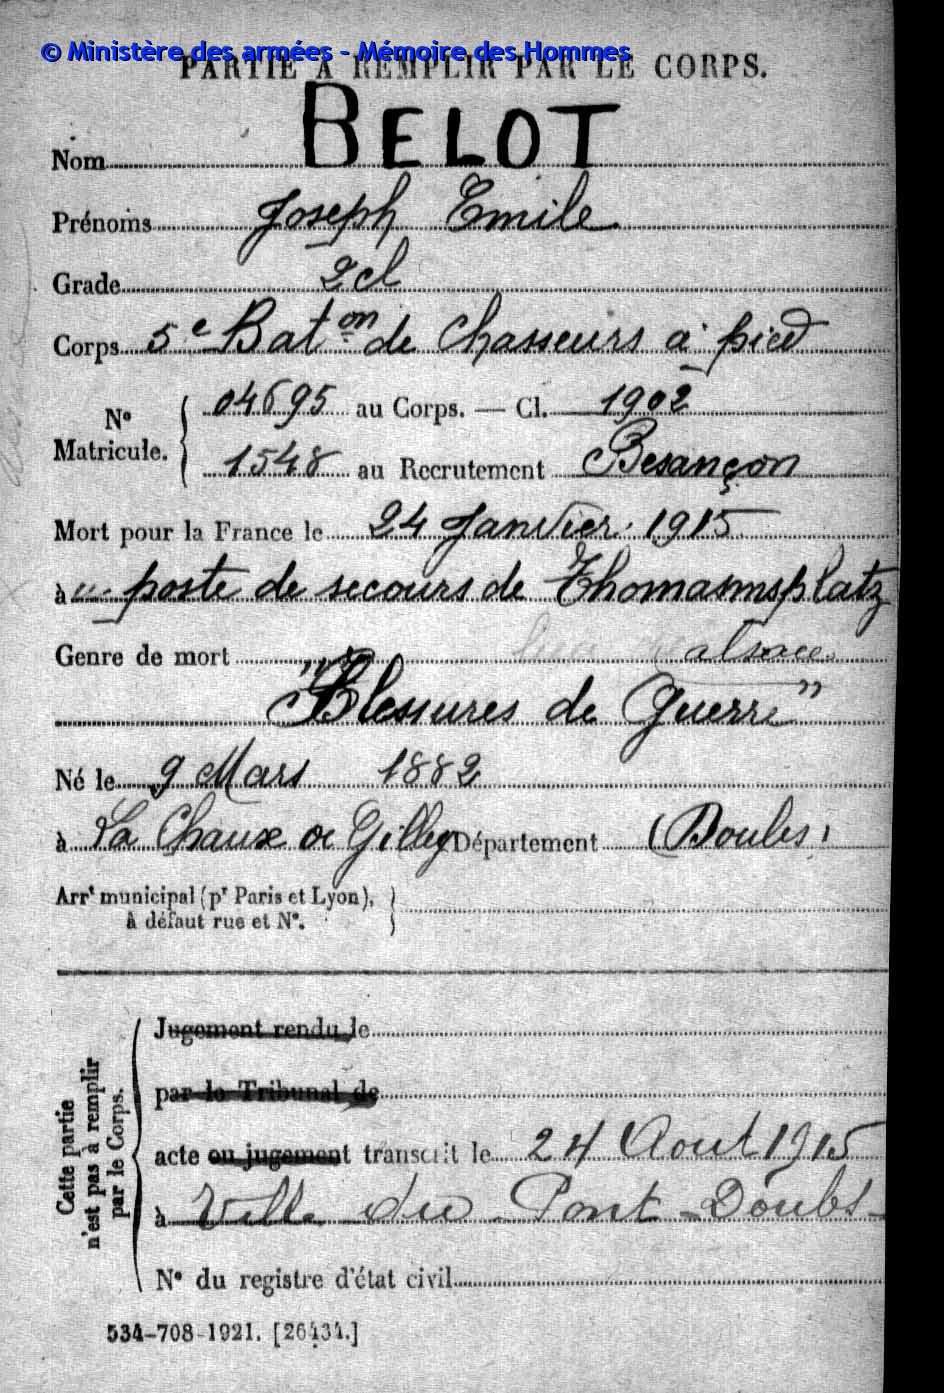 © Ministère des armées - Mémoire des Hommes
PARTIE À REMPLIR PAR LE CORPS.
Nom BELOT
Prénoms Joseph Emile
Grade 2 cl
Corps 5e Baton de Chasseurs à pied
No Matricule. { 04695 au Corps. — Cl. 1902
1548 au Recrutement Besançon
Mort pour la France le 24 Janvier 1915
à poste de secours de Thomannsplatz
Genre de mort alsace
"Blessures de Guerre"
Né le 9 Mars 1882
à La Chaux de Gilley Département (Doubs)
Arrt municipal (pr Paris et Lyon),
à défaut rue et No.
Cette partie n'est pas à remplir par le Corps.
Jugement rendu le
par le Tribunal de
acte ou jugement transcrit le 24 Aout 1915
à Ville du Pont - Doubs -
No du registre d'état civil
534-708-1921. [26434.]